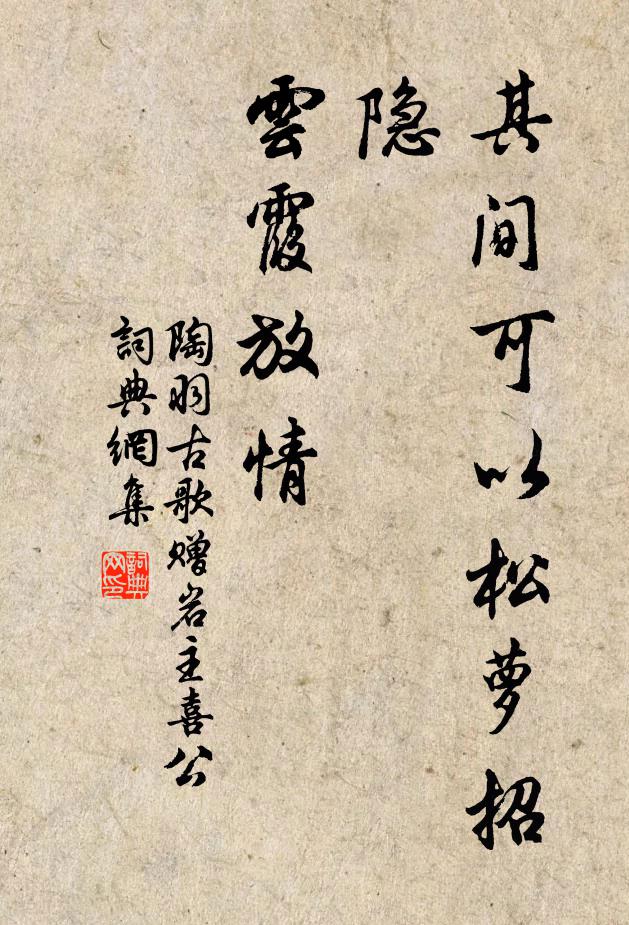 其间可以松萝招
隐
雲霞放情
陶羽古歌赠岩主喜公
詞典網集
詞典
网印